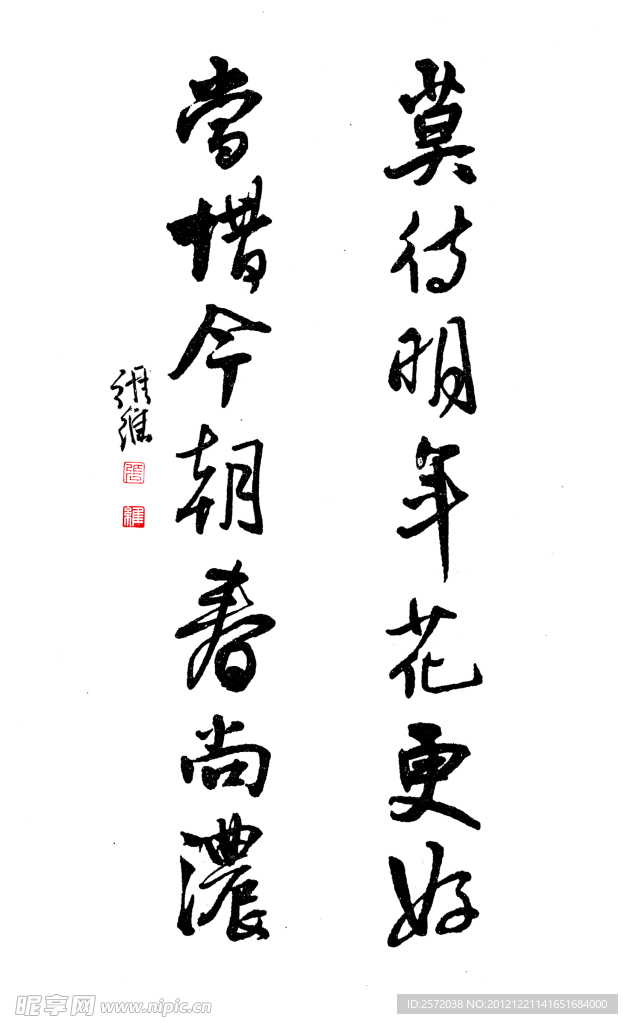 莫待明年花更好
當惜今朝春尚濃
張維
張
維
昵享网 www.nipic.cn
ID:2572038 NO:20121221141651684000